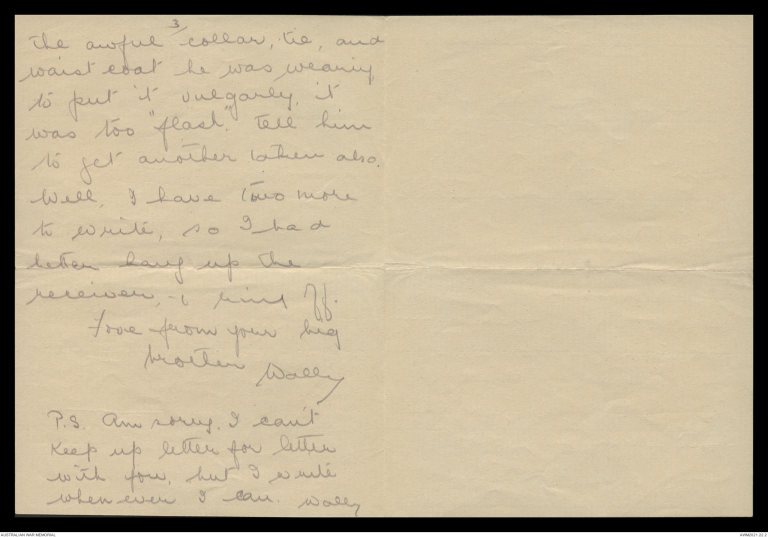 3
the awful collar, tie, and
waist coat he was wearing
to put it vulgarly, it
was too "flash". Tell him
to get another taken also.
Well, I have two more
to write, so I had
better hang up the
receiver, & ring off.
Love from your big
brother
Wally
P.S. Am sorry, I can't
keep up letter for letter
with you, but I write
when ever I can. Wally
AUSTRALIAN WAR MEMORIAL
AWM2021.22.2